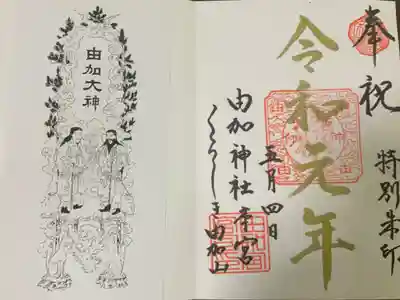 奉祝
特別朱印
令和元年
五月四日
由加神社本宮
由加山
由加大神